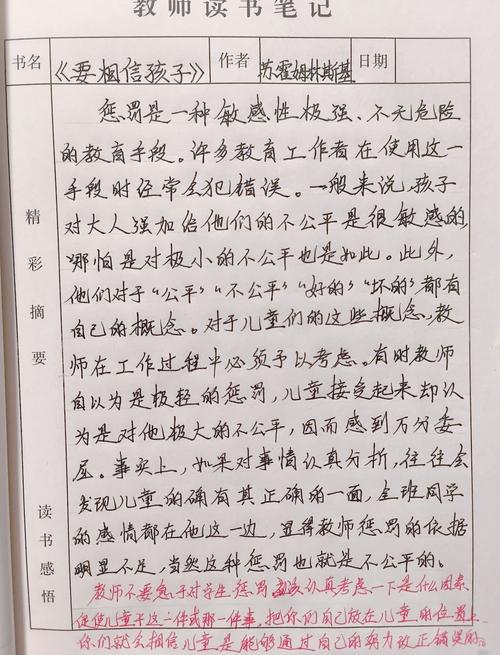 教师读书笔记
书名 《要相信孩子》 作者 苏霍姆林斯基 日期
精彩摘要
惩罚是一种敏感性极强、不无危险
的教育手段。许多教育工作者在使用这一
手段时经常会犯错误。一般来说,孩子
对大人强加给他们的不公平是很敏感的,
哪怕是对极小的不公平也是如此。此外,
他们对于“公平”“不公平”“好的”“坏的”都有
自己的概念。对于儿童们的这些概念,教
师在工作过程中必须予以考虑。有时教师
自以为是极轻的惩罚,儿童接受起来却认
为是对他极大的不公平,因而感到万分委
屈。事实上,如果对事情认真分析,往往会
发现儿童的确有其正确的一面,全班同学
的感情都在他这一边,显得教师惩罚的依据
明显不足,当然这种惩罚也就是不公平的。
读书感悟
教师不要急于对学生惩罚,应该认真考虑一下是什么因素
促使儿童干这一件或那一件事,把你们自己放在儿童的位置上
你们就会相信儿童是能够通过自己的努力改正错误的。